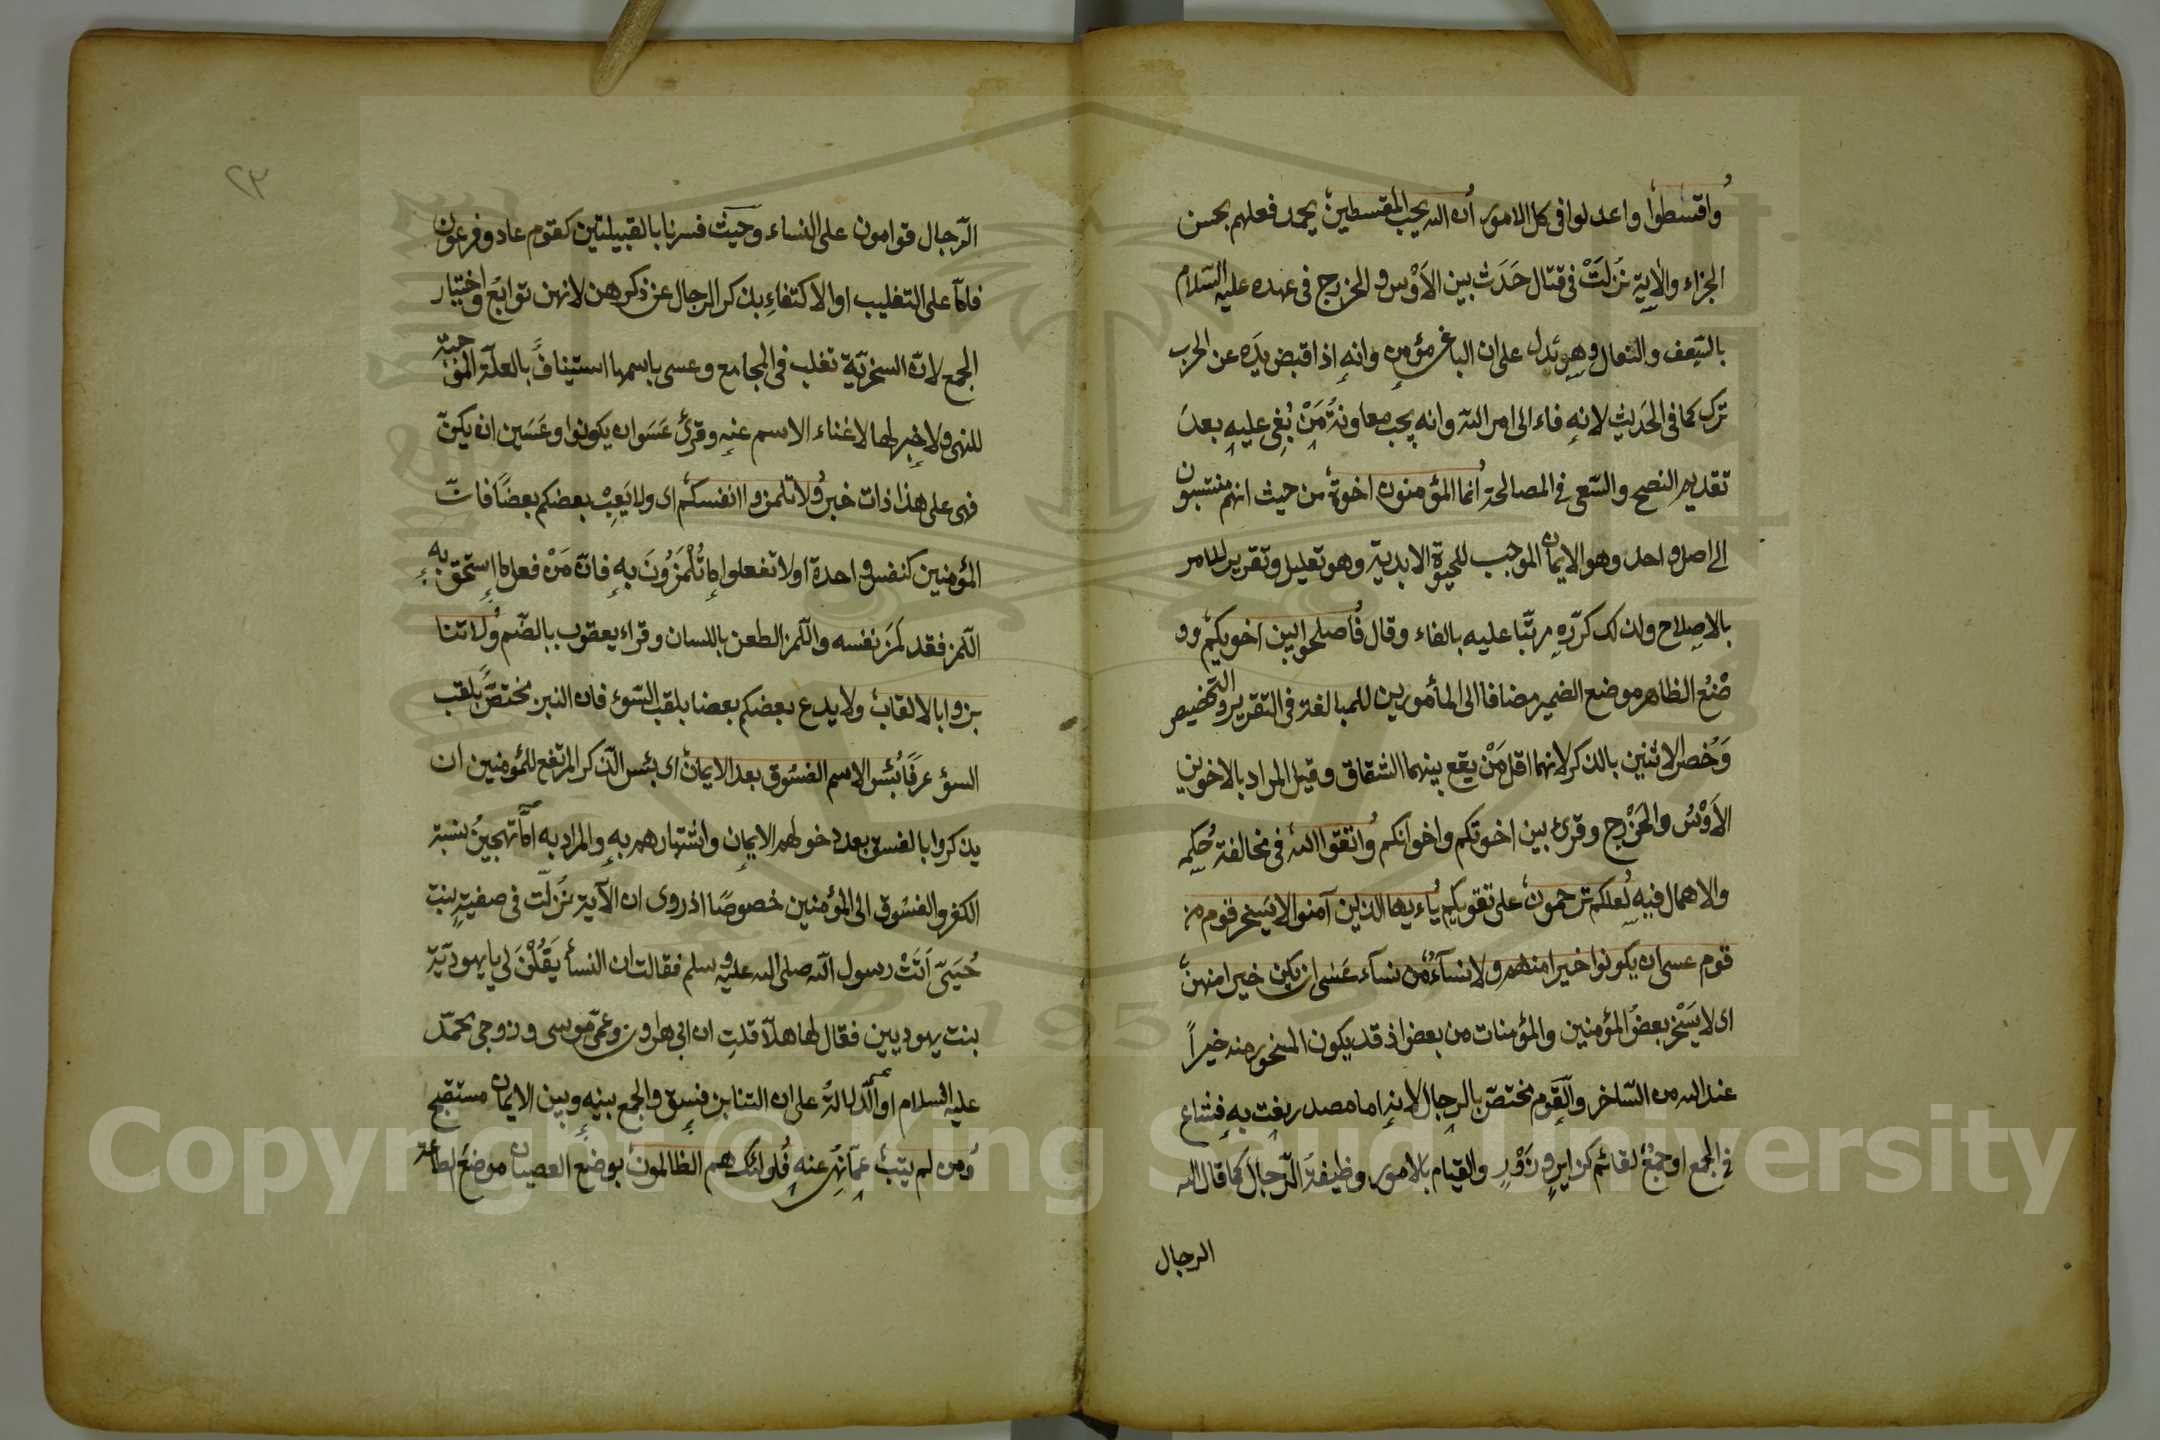 واقسطوا واعدلوا فى كل الامور ان الله يحب المقسطين يحمد فعلهم بحسن
الجزاء والآية نزلت فى قتال حدث بين الاوس و الخزرج فى عهده عليه السلام
بالسعف والنعال وهو يدل على ان الباغى مؤمن وانه اذا قبض يده عن الحرب
ترك كما فى الحديث لانه فاء الى امر الله وانه يجب معاونة من بغى عليه بعد
تقديم النصح والسعى فى المصالحة انما المؤمنون اخوة من حيث انهم منتسبون
الى اصل واحد وهو الايمان الموجب للحيوة الابدية وهو تعليل وتقرير للامر
بالاصلاح ولذلك كرره مرتبا عليه بالفاء وقال فاصلحوا بين اخويكم وو
ضع الظاهر موضع الضمير مضافا الى المأمورين للمبالغة فى التقرير والتخصيص
وخص الاثنين بالذكر لانهما اقل من يقع بينهما الشقاق وقيل المراد بالاخوين
الاوس والخزرج وقرئ بين اخوتكم واخوانكم واتقوا الله فى مخالفة حكمه
والاهمال فيه لعلكم ترحمون على تقويكم ياءيها الذين آمنوا لا يسخر قوم من
قوم عسى ان يكونوا خيرا منهم ولا نساء من نساء عسى ان يكن خيرا منهن
اى لا يسخر بعض المؤمنين والمؤمنات من بعض اذ قد يكون المسخور منه خيرا
عند الله من الساخر والقوم مختص بالرجال لانه اما مصدر نعت به فشاع
فى الجمع او جمع لقائم كزاير وزور والقيام بالامور وظيفة الرجال كما قال الله
الرجال
٢٣
الرجال قوامون على النساء وحيث فسرنا بالقبيلتين كقوم عاد وفرعون
فاما على التغليب او الاكتفاء بذكر الرجال عن ذكرهن لانهن توابع واختيار
الجمع لان السخرية تغلب فى المجامع وعسى باسمها استيناف بالعلة الموجبة
للنهى ولا خبر لها لاغناء الاسم عنه وقرئ عسوا ان يكونوا وعسين ان يكن
فهى على هذا ذات خبر ولا تلمزوا انفسكم اى ولا يعب بعضكم بعضا فان
المؤمنين كنفس واحدة او لا تفعلوا ما تلمزون به فان من فعل ما استحق به
اللمز فقد لمز نفسه واللمز الطعن باللسان وقراء يعقوب بالضم ولا تنا
بزوا بالالقاب ولا يدع بعضكم بعضا بلقب السوء فان النبز مختص بلقب
السوء عرفا بئس الاسم الفسوق بعد الايمان اى بئس الذكر المرتفع للمؤمنين ان
يذكروا بالفسق بعد دخولهم الايمان واشتهارهم به والمراد به اما تهجين نسبة
الكفر والفسوق الى المؤمنين خصوصا اذ روى ان الآية نزلت فى صفية بنت
حيى اتت رسول الله صلى الله عليه وسلم فقالت ان النساء يقلن لى يا يهودية
بنت يهوديين فقال لها هلا قلت ان ابى هارون وعمى موسى وزوجى محمد
عليه السلام او الدلالة على ان التنابز فسق والجمع بينه وبين الايمان مستقبح
ومن لم يتب عما نهى عنه فاولئك هم الظالمون بوضع العصيان موضع الطاعة
Copyright © King Saud University
1957